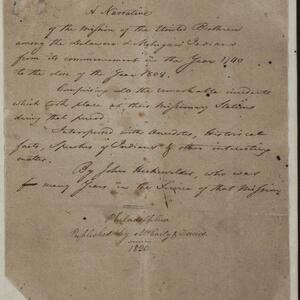 A Narrative
of the Mission of the United Brethren
among the Delaware & Mohegan Indians
from its commencement in the Year 1740
to the close of the Year 1808.
Comprising all the remarkable incidents
which took place at their Missionary Stations
during that period.
Interspersed with Anecdotes, Historical
facts, Speeches of Indians & other interesting
matter.
By John Heckewelder, who was
many Years in the Service of that Mission.
Philadelphia
Published by McCarty & Davis
1820